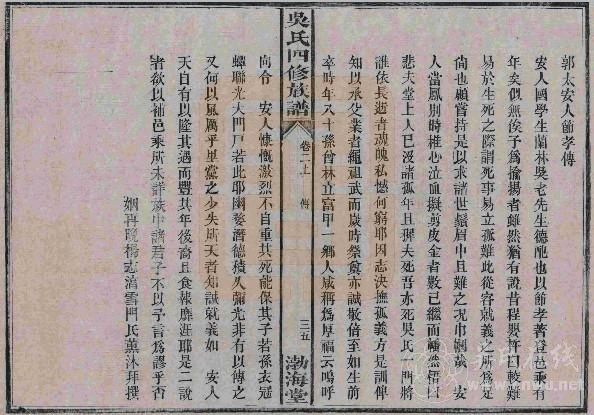 郭太安人節孝傳
安人國學生蘭林吳老先生德配也以節孝著登邑乘有
年矣似無俟予為揄揚者雖然猶有說昔程嬰杵臼較難
易於生死之際謂死事易立孤難此從容就義之所為足
尚也顧嘗持是以求諸世鬚眉中且難之況巾幗乎安
人當鳳別時椎心泣血擬剪皮金者數已繼而幡然悟
悲夫堂上人已沒諸孤年且穉夫死吾亦死吳氏一門將
誰依長逝者魂魄私憾何窮耶因志決撫孤義方是訓俾
知以承父業者繩祖武而歲時祭奠亦誠敬倍至如生前
卒時年八十孫曾林立富甲一鄉人咸稱為厚福云嗚呼
吳氏四修族譜
卷二上
傳
三五
渤海堂
向令 安人慷慨激烈不自重其死能保其子若孫衣冠
蟬聯光大門戶若此耶幽婺潛德積久彌光非有以傳之
又何以風厲乎里黨之少失所天者知誠就義如 安人
天自有以隆其遇而豐其年後裔且食報靡涯耶是二說
者欲以補邑乘所未詳族中諸君子不以予言為謬乎否
姻再晚楊志濤雪門氏薰沐拜撰